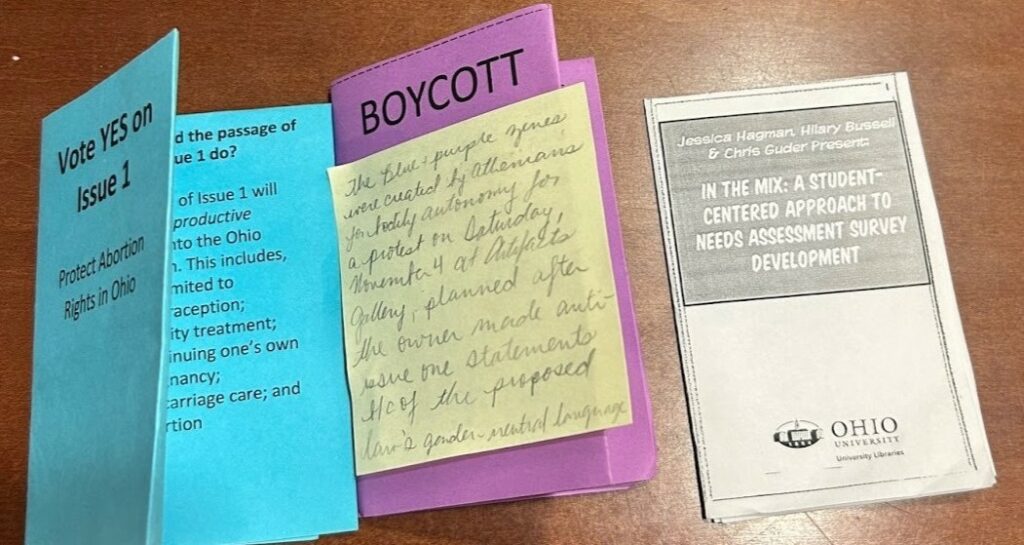 Vote YES on
Issue 1
Protect Abortion
Rights in Ohio
d the passage of
ue 1 do?
of Issue 1 will
productive
nto the Ohio
n. This includes,
mited to
raception;
ity treatment;
inuing one's own
nancy;
carriage care; and
rtion
BOYCOTT
The Blue + purple zines
were created by Athenians
for bodily autonomy for
a protest on Saturday,
November 4 at Artifacts
Gallery, planned after
the owner made anti-
issue one statements
b/c of the proposed
law's gender-neutral language
Jessica Hagman, Hilary Bussell
& Chris Guder Present:
IN THE MIX: A STUDENT-
CENTERED APPROACH TO
NEEDS ASSESSMENT SURVEY
DEVELOPMENT
OHIO
UNIVERSITY
University Libraries